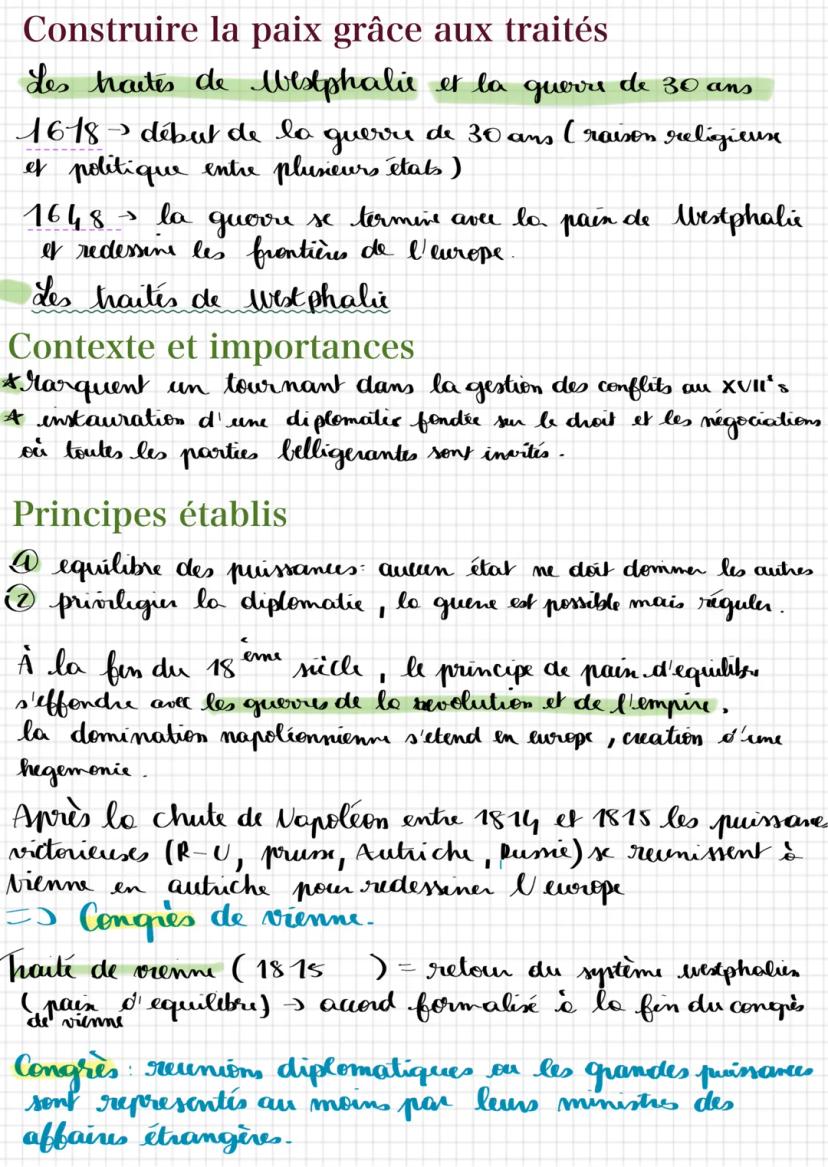 Construire la paix grâce aux traités
Les traités de Westphalie et la guerre de 30 ans
1618 → début de la guerre de 30 ans (raison religieuse
et politique entre plusieurs états)
1648 → la guerre se termine avec la paix de Westphalie
et redessine les frontières de l'europe.
Les traités de westphalie
Contexte et importances
* Marquent un tournant dans la gestion des conflits au XVII's
* instauration d'une diplomatie fondée sur le droit et les négociations
où toutes les parties belligerantes sont invités.
Principes établis
① equilibre des puissances: aucun état ne doit dominer les autres
② privilegier la diplomatie, la guerre est possible mais réguler.
À la fin du 18 ème siècle, le principe de paix d'equilibre
s'effondre avec les guerres de la revolution et de l'empire,
la domination napoléonnienne s'etend en europe, creation d'une
hegemonie.
Après la chute de Napoléon entre 1814 et 1815 les puissances
victorieuses (R-U, prusse, Autriche, Russie) se reunissent à
Vienne en autriche pour redessiner l'europe
=> Congrès de vienne.
Traité de vienne (1815 ) = retour du système westphalien
(paix d'equilibre) → accord formalisé à la fin du congrès
de vienne
Congrès: reunions diplomatiques ou les grandes puissances
sont representés au moins par leurs ministres des
affaires étrangères.